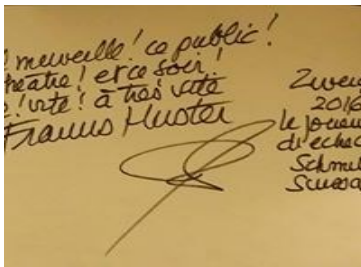 merveille! ce public!
théâtre! et ce soir!
vite! à très vite
Francis Huster
Zweig
2016
le joueur
d'echec